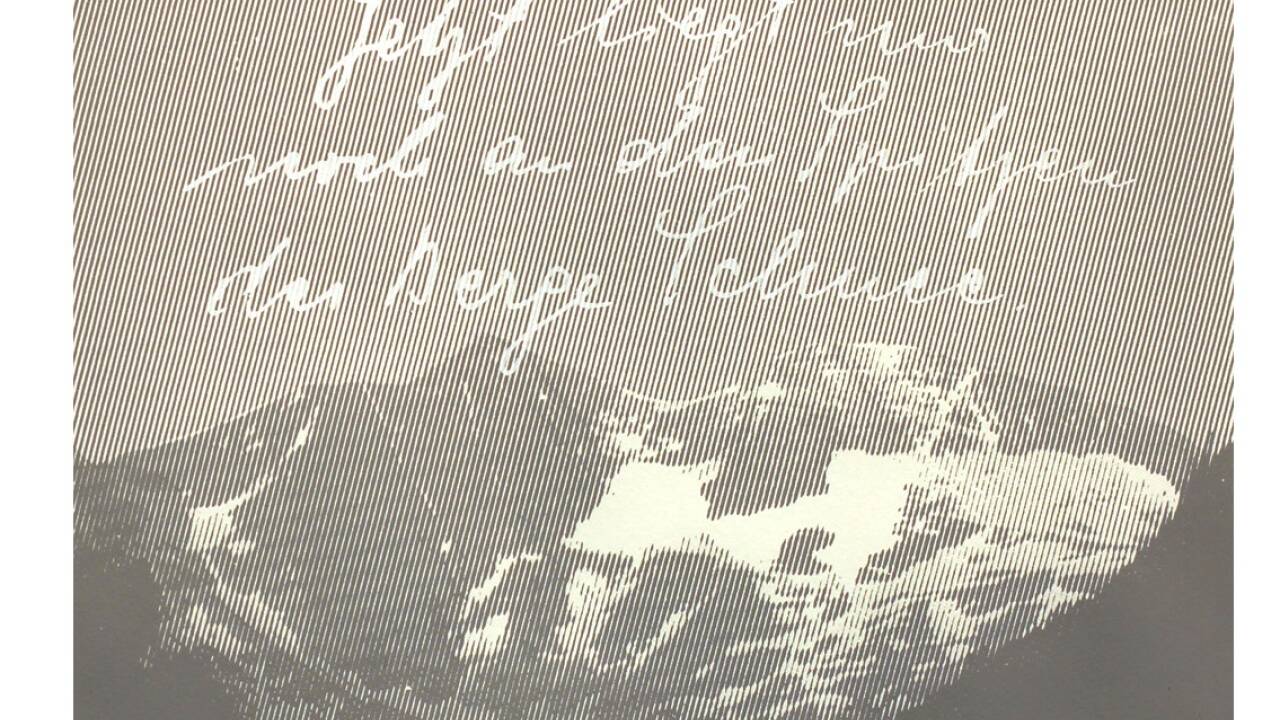 Jetzt liegt nur
noch an den Spitzen
der Berge Schnee.